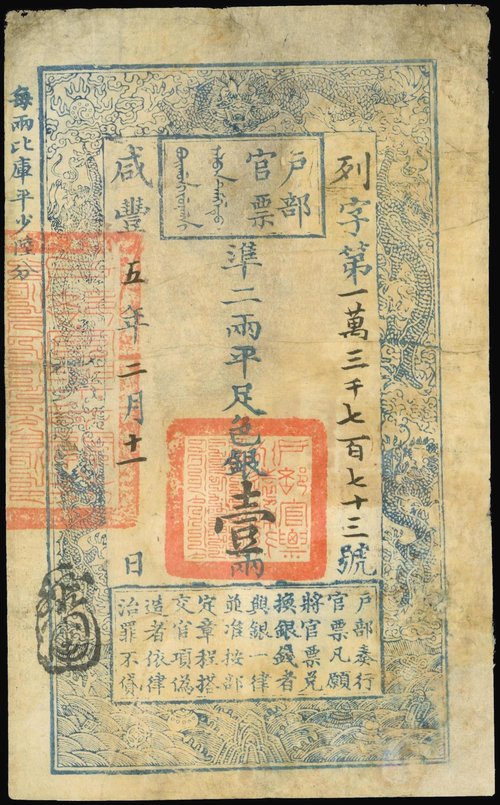 列字第一萬三千七百七十三號
戶部
官票
準二兩平足色銀壹兩
咸豐五年二月十一日
戶部奏行
官票凡願
將官票兌
換銀錢者
與銀一律
並准按部
定章程搭
交官項偽
造者依律
治罪不貸
每兩比庫平少陸分